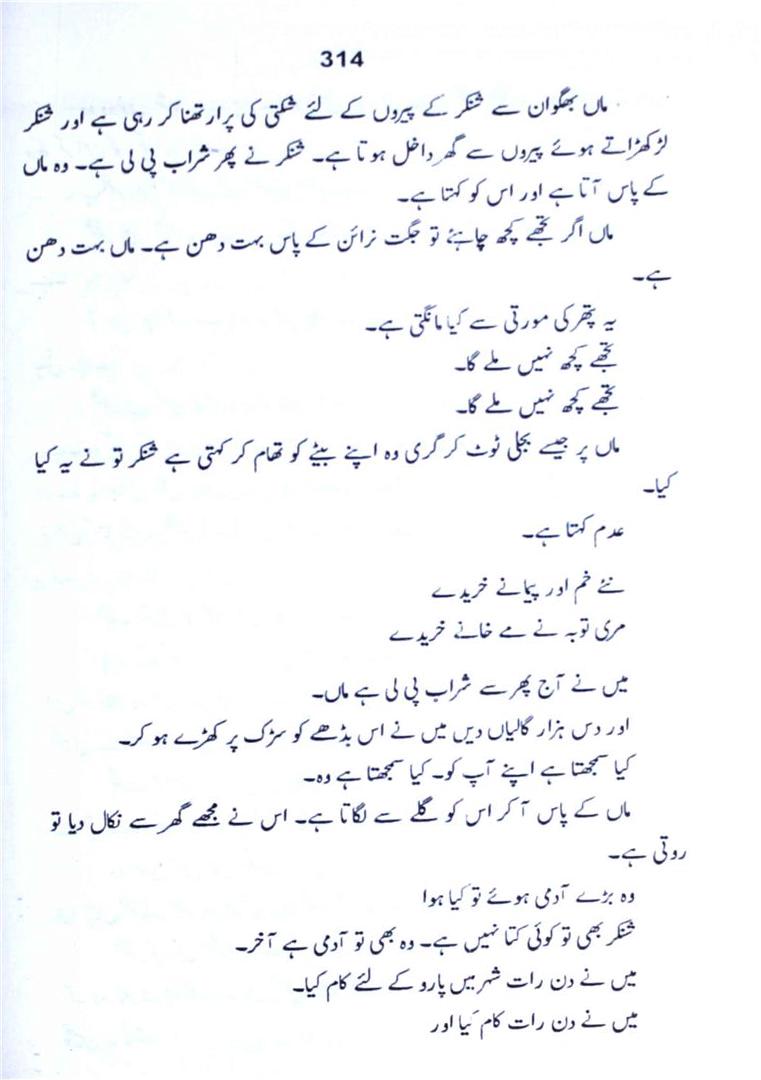 314
ماں بھگوان سے شنکر کے پیروں کے لئے شکتی کی پرارتھنا کر رہی ہے اور شنکر
لڑکھڑاتے ہوئے پیروں سے گھر داخل ہوتا ہے۔ شنکر نے پھر شراب پی لی ہے۔ وہ ماں
کے پاس آتا ہے اور اس کو کہتا ہے۔
ماں اگر تجھے کچھ چاہئے تو جگت نرائن کے پاس بہت دھن ہے۔ ماں بہت دھن
ہے۔
یہ پتھر کی مورتی سے کیا مانگتی ہے۔
تجھے کچھ نہیں ملے گا۔
تجھے کچھ نہیں ملے گا۔
ماں پر جیسے بجلی ٹوٹ کر گری وہ اپنے بیٹے کو تھام کر کہتی ہے شنکر تو نے یہ کیا
کیا۔
عدم کہتا ہے۔
نئے خم اور پیمانے خریدے
مری توبہ نے مے خانے خریدے
میں نے آج پھر سے شراب پی لی ہے ماں۔
اور دس ہزار گالیاں دیں میں نے اس بڈھے کو سڑک پر کھڑے ہو کر۔
کیا سمجھتا ہے اپنے آپ کو۔ کیا سمجھتا ہے وہ۔
ماں کے پاس آ کر اس کو گلے سے لگاتا ہے۔ اس نے مجھے گھر سے نکال دیا تو
روتی ہے۔
وہ بڑے آدمی ہوئے تو کیا ہوا
شنکر بھی تو کوئی کتا نہیں ہے۔ وہ بھی تو آدمی ہے آخر۔
میں نے دن رات شہر میں پارو کے لئے کام کیا۔
میں نے دن رات کام کیا اور